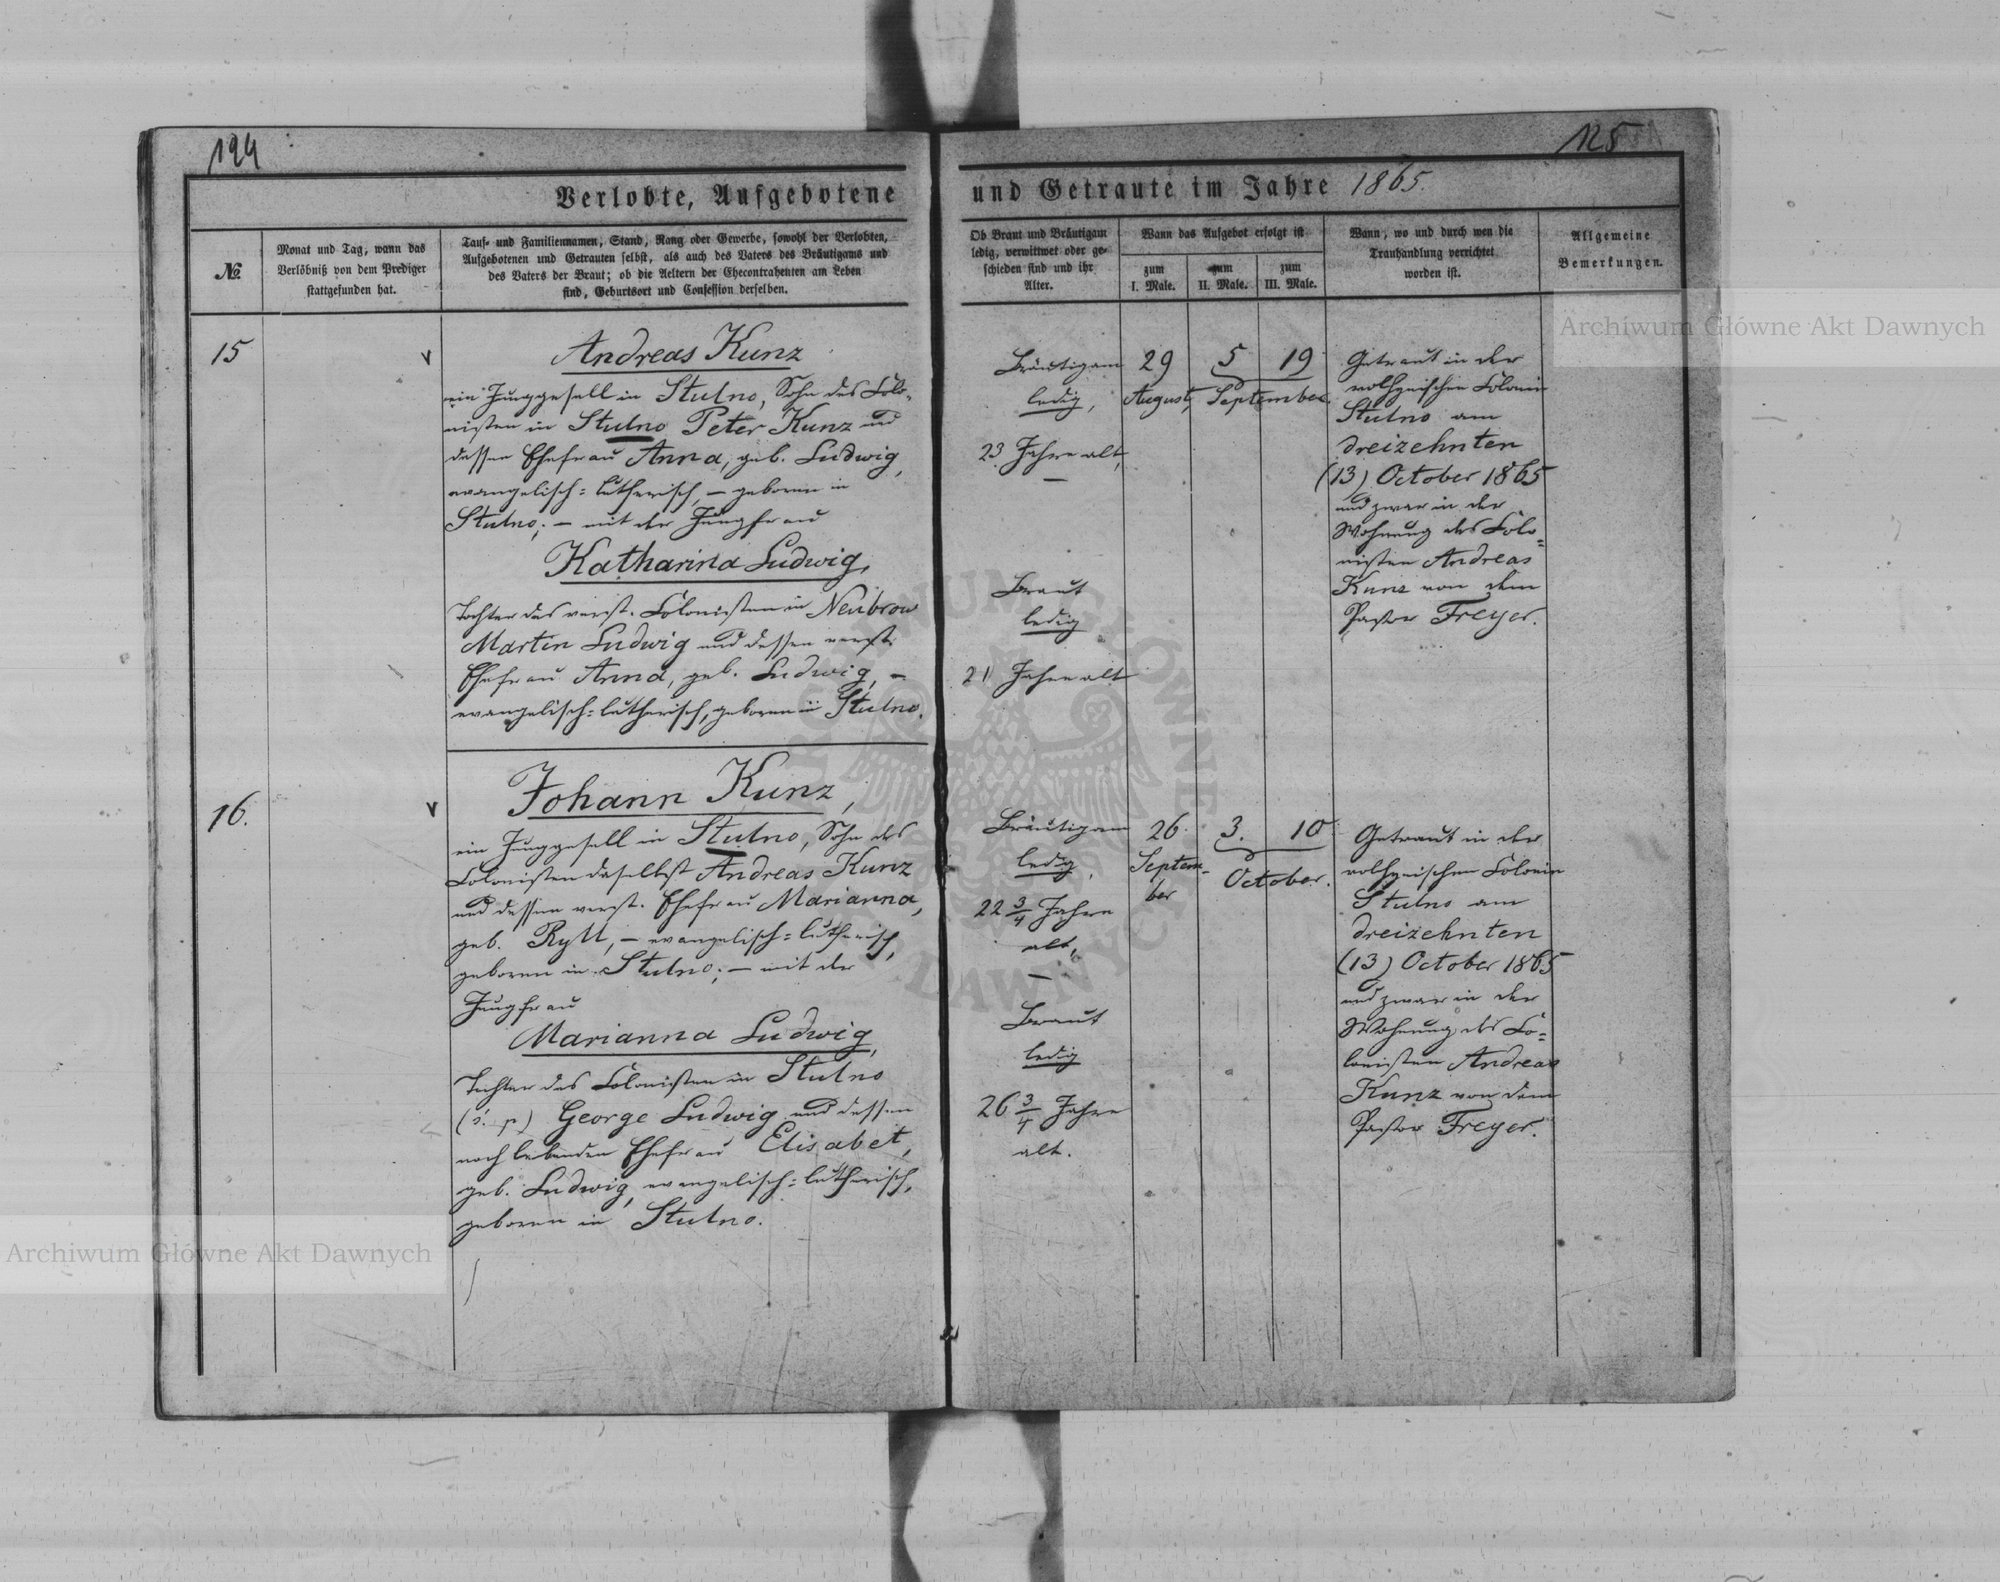 124
125
Verlobte, Aufgebotene und Getraute im Jahre 1865.
№
Monat und Tag, wann das
Verlöbniß von dem Prediger
stattgefunden hat.
Tauf- und Familiennamen, Stand, Rang oder Gewerbe, sowohl der Verlobten,
Aufgebotenen und Getrauten selbst, als auch des Vaters des Bräutigams und
des Vaters der Braut; ob die Aeltern der Ehecontrahenten am Leben
sind, Geburtsort und Confession derselben.
Ob Braut und Bräutigam
ledig, verwittwet oder ge-
schieden sind und ihr
Alter.
Wann das Aufgebot erfolgt ist
zum
I. Male.
zum
II. Male.
zum
III. Male.
Wann, wo und durch wen die
Trauhandlung verrichtet
worden ist.
Allgemeine
Bemerkungen.
15
Andreas Kunz
ein Junggesell in Stulno, Sohn des Colo-
nisten in Stulno Peter Kunz und
dessen Ehefrau Anna, geb. Ludwig,
evangelisch-lutherisch, – geboren in
Stulno; – mit der Jungfrau
Katharina Ludwig,
Tochter des verst. Colonisten in Neubrow
Martin Ludwig und dessen verst.
Ehefrau Anna, geb. Ludwig, –
evangelisch-lutherisch, geboren in Stulno.
Bräutigam
ledig,
23 Jahre alt,
–
Braut
ledig
21 Jahre alt
29 5 19
August, September
Getraut in der
volhynischen Colonie
Stulno am
dreizehnten
(13) October 1865
und zwar in der
Wohnung des Colo-
nisten Andreas
Kunz von dem
Pastor Freyer.
16.
Johann Kunz,
ein Junggesell in Stulno, Sohn des
Colonisten daselbst Andreas Kunz
und dessen verst. Ehefrau Marianna,
geb. Rytt, – evangelisch-lutherisch,
geboren in Stulno; – mit der
Jungfrau
Marianna Ludwig,
Tochter des Colonisten in Stulno
George Ludwig und dessen
noch lebenden Ehefrau Elisabet,
geb. Ludwig, evangelisch-lutherisch,
geboren in Stulno.
Bräutigam
ledig,
22 3/4 Jahre
alt,
–
Braut
ledig
26 3/4 Jahre
alt.
26. 3. 10
Septem-
ber
October.
Getraut in der
volhynischen Colonie
Stulno am
dreizehnten
(13) October 1865
und zwar in der
Wohnung des Co-
lonisten Andreas
Kunz von dem
Pastor Freyer.
Archiwum Główne Akt Dawnych
Archiwum Główne Akt Dawnych